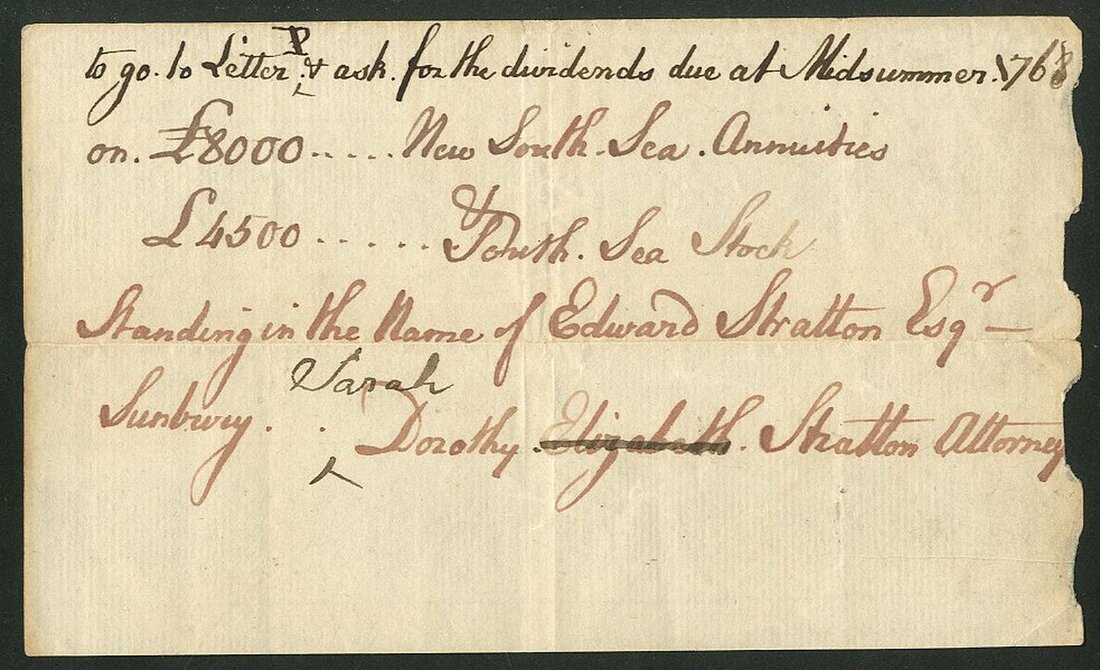 to go. to Letter P & ask. for the dividends due at Midsummer. 1768
on. £8000 ..... New South. Sea. Annuities
£4500 ...... & South. Sea Stock
Standing in the Name of Edward Stratton Esqr
Sunbury. . Sarah Dorothy Elizabeth. Stratton Attorney